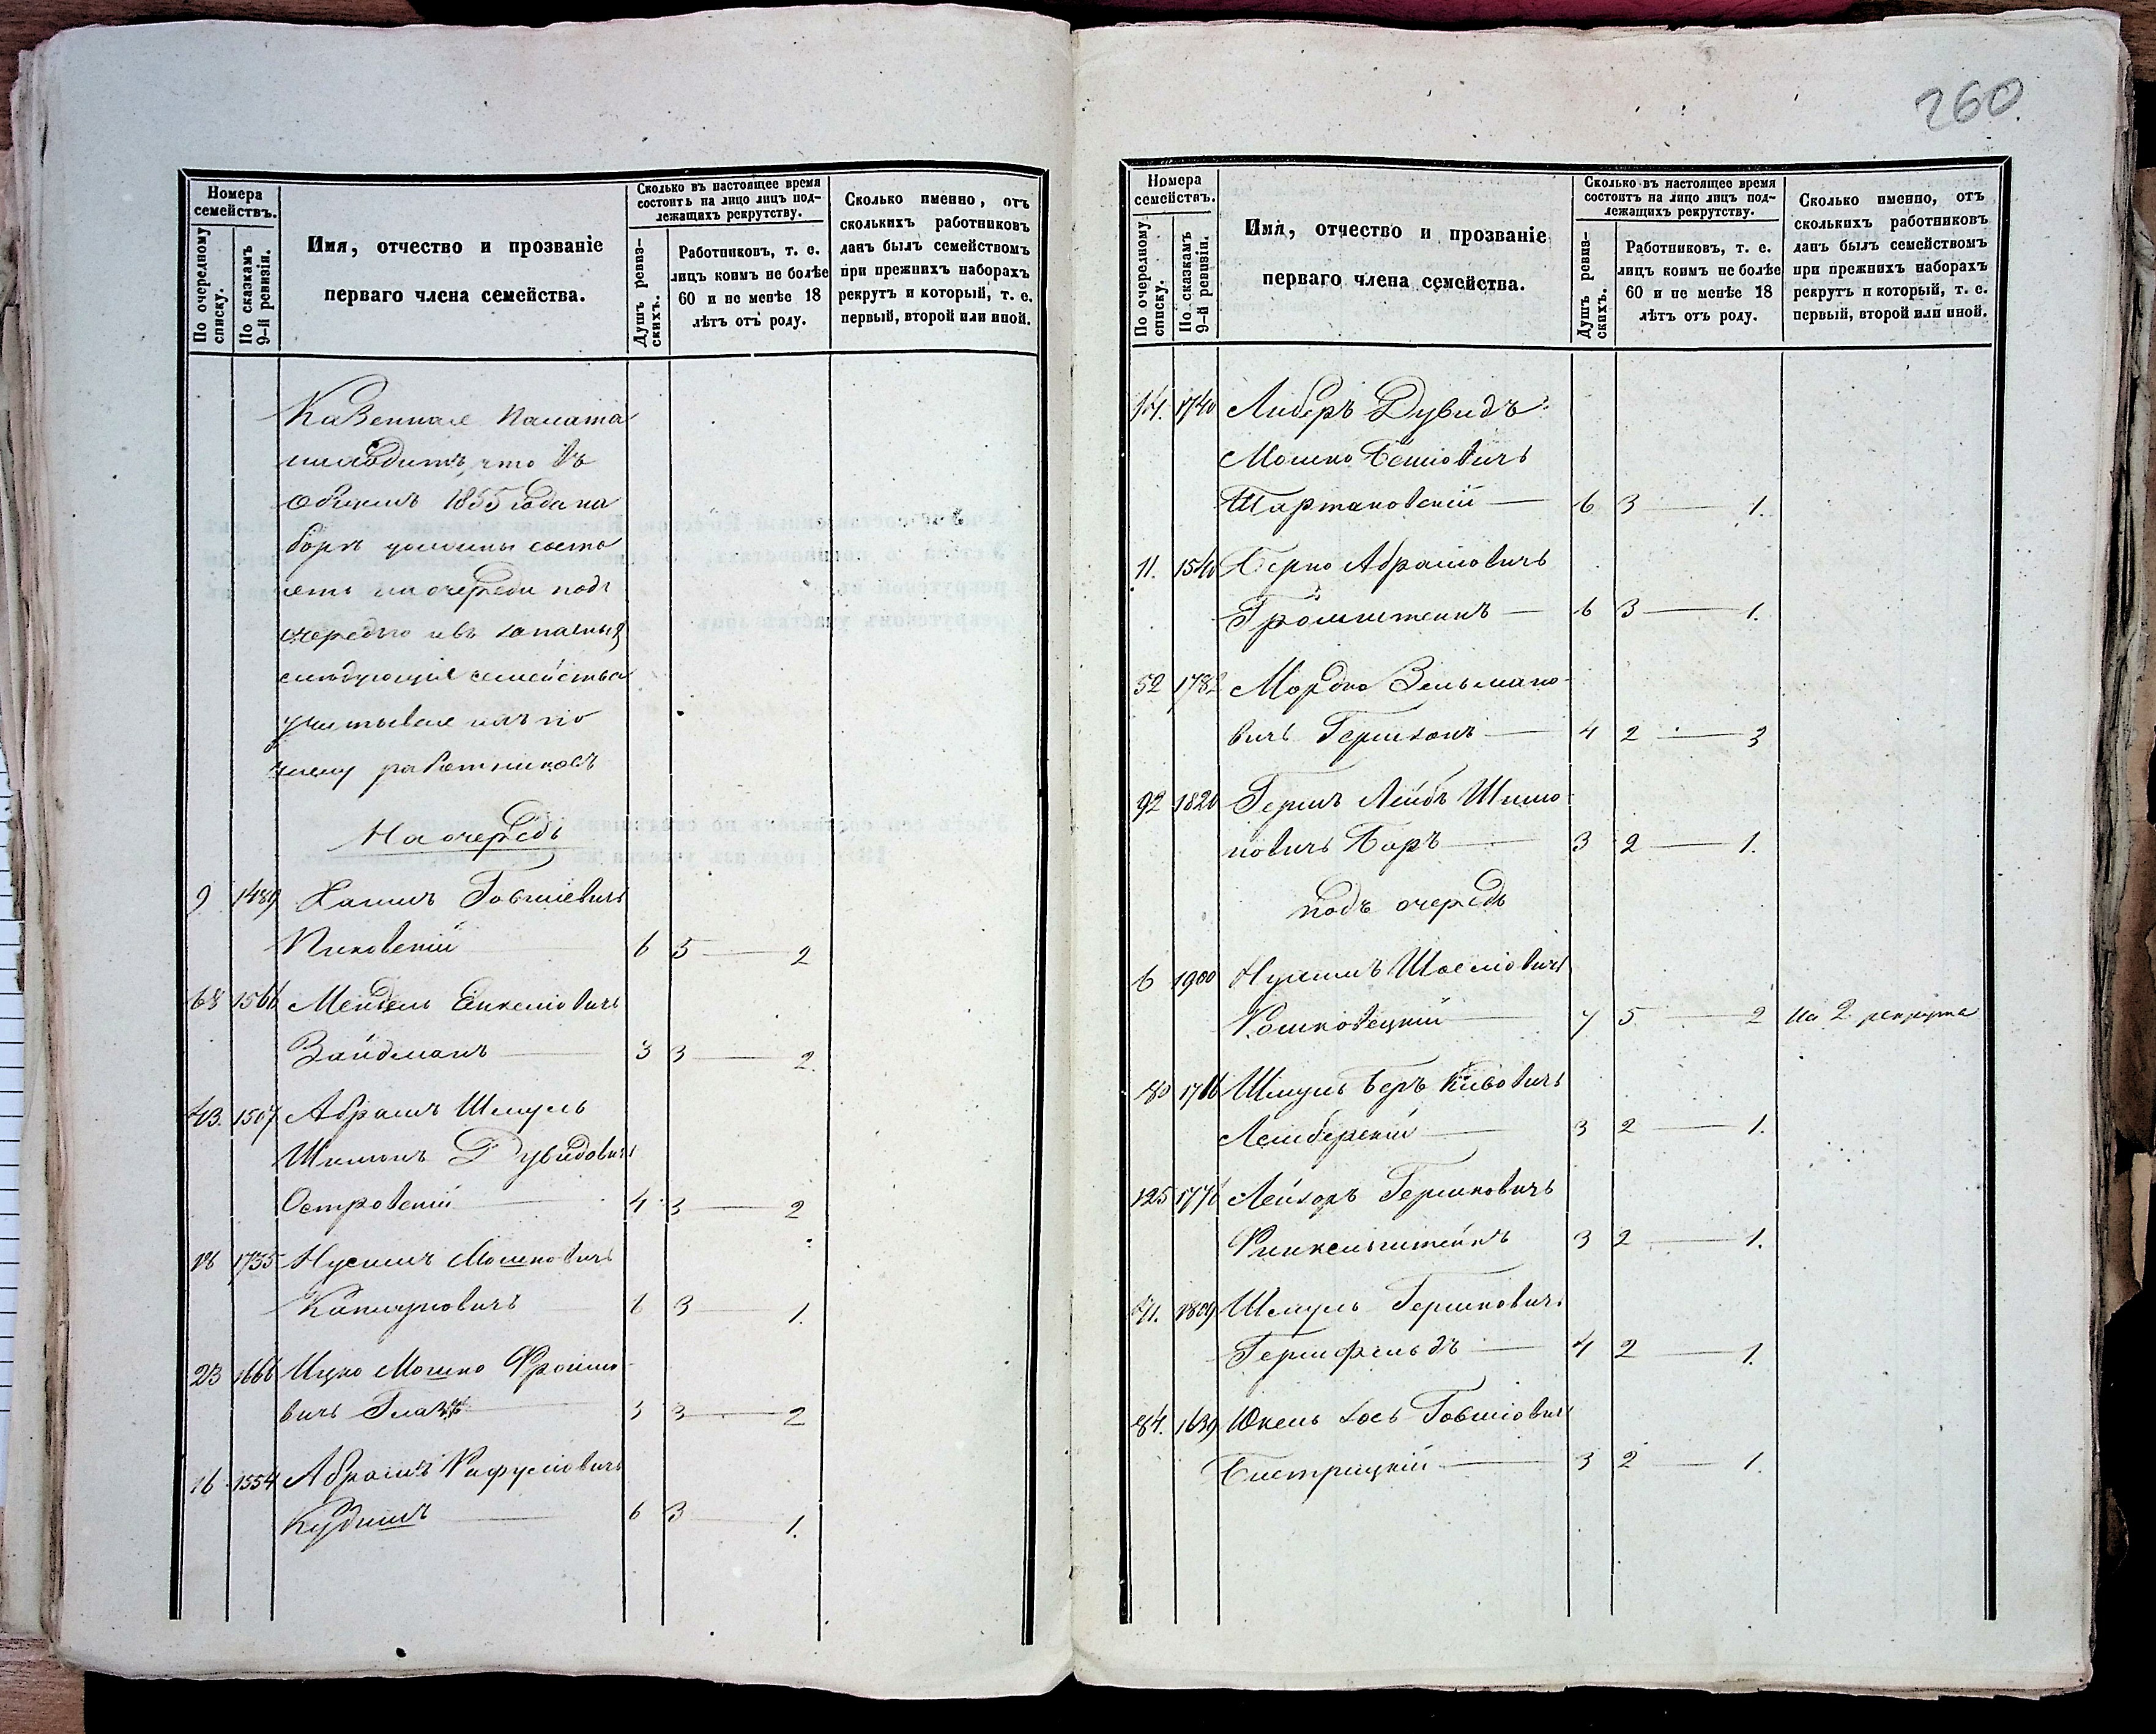 260
Номера семействъ.
По очередному списку.
По сказкамъ 9-й ревизіи.
Имя, отчество и прозваніе
перваго члена семейства.
Сколько въ настоящее время
состоитъ на лицо лицъ под-
лежащихъ рекрутству.
Душъ ревиз-
скихъ.
Работниковъ, т. е.
лицъ коимъ не болѣе
60 и не менѣе 18
лѣтъ отъ роду.
Сколько именно, отъ
сколькихъ работниковъ
данъ былъ семействомъ
при прежнихъ наборахъ
рекрутъ и который, т. е.
первый, второй или иной.
Казенная Палата
находитъ, что въ
общемъ 1855 года на
борѣ должны состо
ять на очереди подъ
очередью и въ запасныхъ
слѣдующія семейства
учитывая ихъ по
числу работниковъ
На очередь
9 1489 Хаимъ Іовшіевичъ
Пиковскій 6 5 — 2
68 1566 Мендель Енкеліовичъ
Зайдманъ 3 3 — 2.
43. 1507 Абрамъ Шмуль
Шимонъ Дувидовичъ
Островскій 4 3 — 2
18 1735 Нусимъ Мошковичъ
6 3 — 1.
23 1666 Ицко Мошко Фроимо-
вичъ 3 3 — 2
16 1554 Абрамъ Рафуліовичъ
Кудишъ 6 3 — 1.
Номера
семействъ.
По очередному
списку.
По сказкамъ
9-й ревизіи.
Имя, отчество и прозваніе
перваго члена семейства.
Сколько въ настоящее время
состоитъ на лицо лицъ под-
лежащихъ рекрутству.
Душъ ревиз-
скихъ.
Работниковъ, т. е.
лицъ коимъ не болѣе
60 и не менѣе 18
лѣтъ отъ роду.
Сколько именно, отъ
сколькихъ работниковъ
данъ былъ семействомъ
при прежнихъ наборахъ
рекрутъ и который, т. е.
первый, второй или иной.
14. 1740 Либеръ Дувидъ
Мошко
Шартановскій — 6 3 — 1.
11. 1540 Берко Абрамовичъ
— 6 3 — 1.
52 1782 Мордко Зельмано-
вичъ Гершзонъ — 4 2 — 3
92 1820 Гершъ Лейбъ Шимо-
новичъ Боръ — 3 2 — 1.
подъ очередь
6 1900 Нухимъ
Рашковецкій — 7 5 — 2 На 2 рекрута
80 1716 Шмуль Беръ
Лемберскій — 3 2 — 1.
125 1776 Лейзоръ Гершковичъ
Финкельштейнъ 3 2 — 1.
1809 Шмуль Гершковичъ
Гершфельдъ — 4 2 — 1.
84. 1639 Юкель Іось Іовшіовичъ
Бистрицкій — 3 2 — 1.